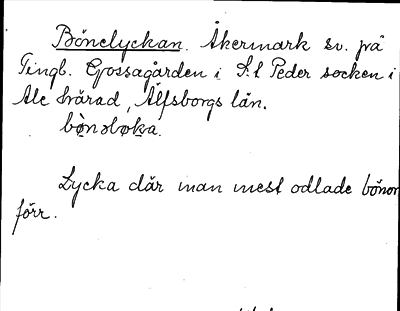 Bönelyckan. Åkermark sv. på
Tingb. Gossagården i S:t Peder socken i
Ale härad, Älfsborgs län.
Lycka där man mest odlade bönor
förr.